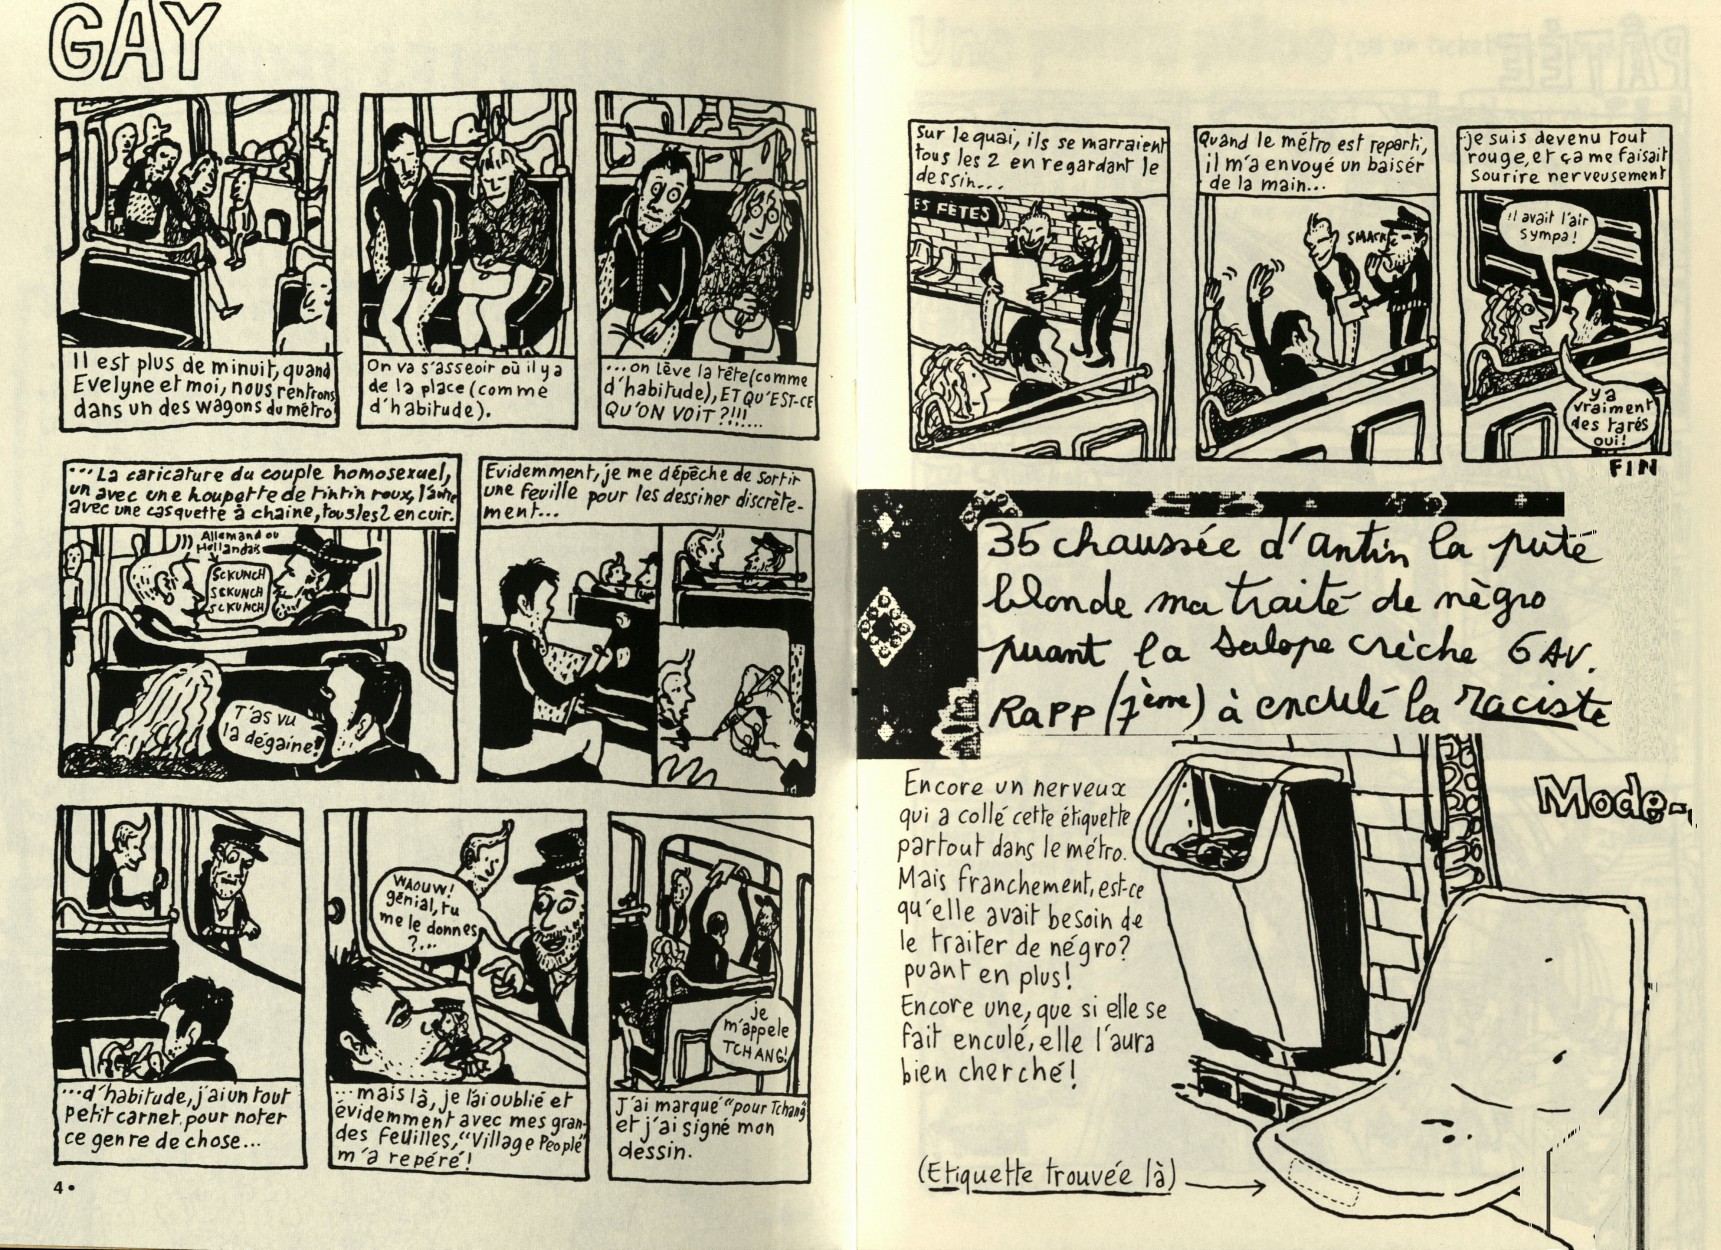 GAY
Il est plus de minuit, quand
Evelyne et moi, nous rentrons
dans un des wagons du métro
On va s'asseoir où il y a
de la place (comme
d'habitude).
...on lève la tête (comme
d'habitude), ET QU'EST-CE
QU'ON VOIT ?!!!....
... La caricature du couple homosexuel,
un avec une houpette de tintin roux, l'autre
avec une casquette à chaine, tous les 2 en cuir.
Allemand ou
Hollandais
SCKUNCH
SCKUNCH
SCKUNCH
T'as vu
la dégaine!
Evidemment, je me dépêche de sortir
une feuille pour les dessiner discrète-
ment...
...d'habitude, j'ai un tout
petit carnet pour noter
ce genre de chose...
WAOUW!
génial, tu
me le donnes
?...
...mais là, je l'ai oublié et
évidemment avec mes gran-
des feuilles, "Village People"
m'a repéré!
je
m'appele
TCHANG!
J'ai marqué "pour Tchang"
et j'ai signé mon
dessin.
4•
Sur le quai, ils se marraient
tous les 2 en regardant le
dessin...
ES FETES
Quand le métro est reparti,
il m'a envoyé un baiser
de la main...
SMACK
je suis devenu tout
rouge, et ça me faisait
sourire nerveusement
il avait l'air
sympa!
y a
vraiment
des tarés
oui!
FIN
35 chaussée d'antin la pute
blonde ma traité de nègro
puant la salope crèche 6 AV.
RAPP (7ème) à enculé la raciste
Encore un nerveux
qui a collé cette étiquette
partout dans le métro.
Mais franchement, est-ce
qu'elle avait besoin de
le traiter de négro?
puant en plus!
Encore une, que si elle se
fait enculé, elle l'aura
bien cherché!
Mode-
(Etiquette trouvée là)